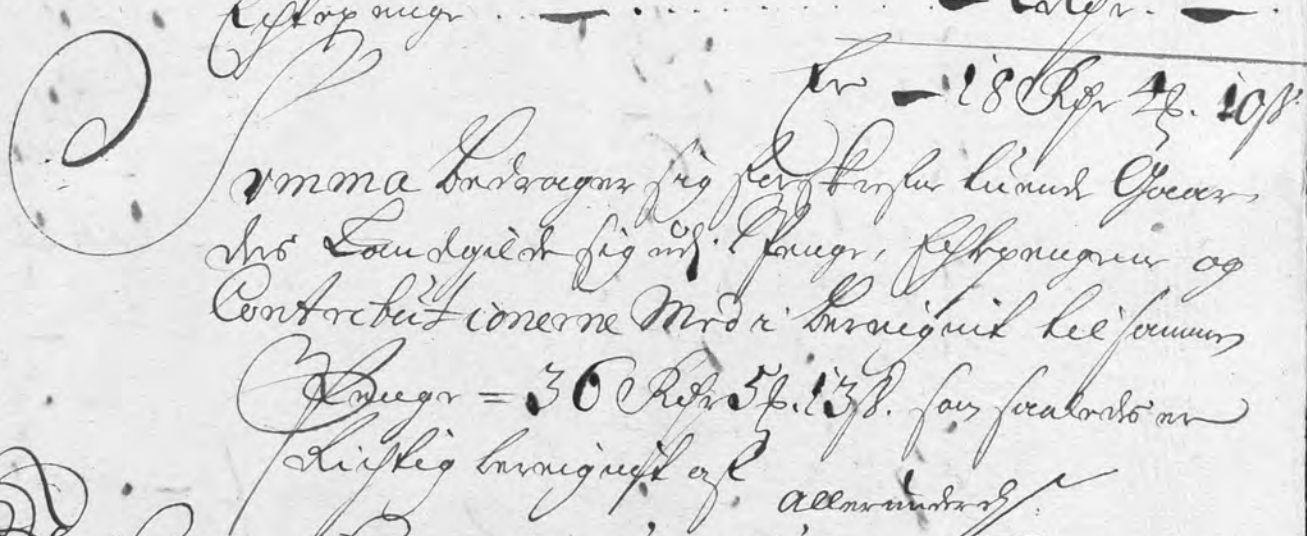 Echtepenge . . — . . . . . . . — Rdr. — .
Er — 18 Rdr 4 ₰. 10 ß
Summa bedrager sig forskrefne tuende Gaar-
des Landgilde sig udj Penge, Echtepengene og
Contributionerne Med i bereignit tilsammen
Penge = 36 Rdr 5 ₰. 13 ß. som saaledes er
Richtig bereignit af
Allerunderd